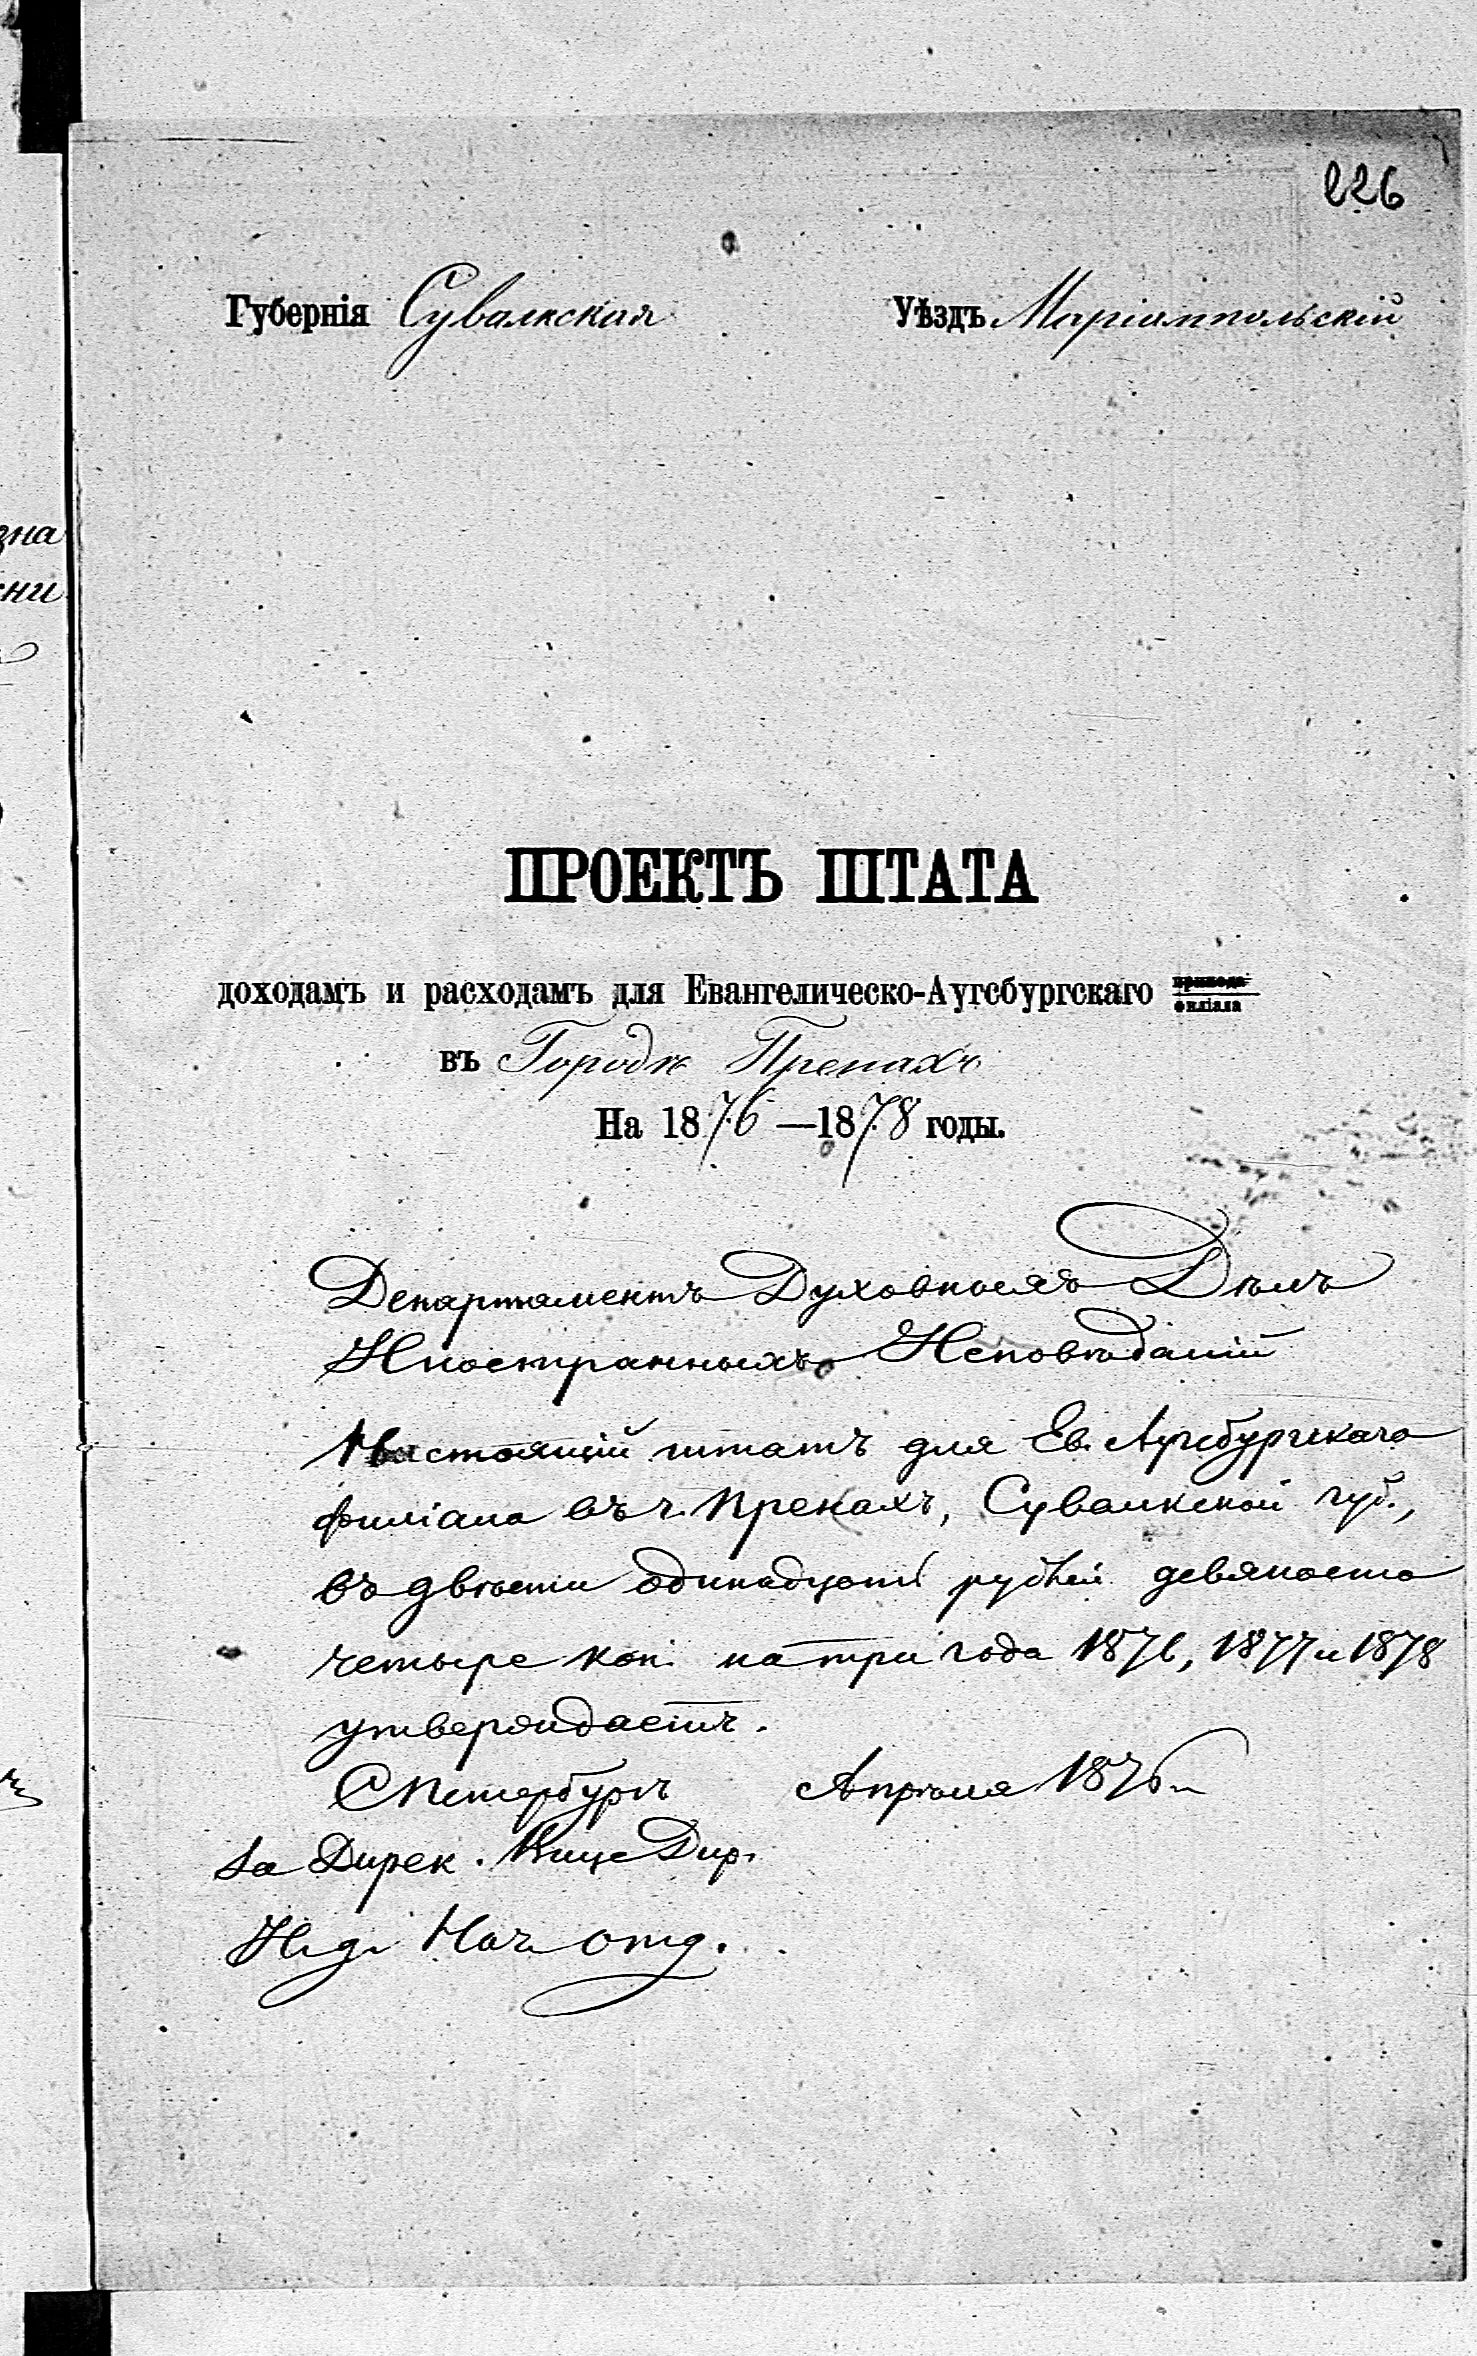 226
Губернія Сувалкская Уѣздъ Маріампольскій
ПРОЕКТЪ ШТАТА
доходамъ и расходамъ для Евангелическо-Аугсбургскаго прихода филіала
въ Городѣ Пренахъ
На 1876—1878 годы.
Департаментъ Духовныхъ Дѣлъ
Иностранныхъ Исповѣданій
Настоящій штатъ для Ев. Аугсбургскаго
филіала въ г. Пренахъ, Сувалкской губ.,
въ двѣсти одинадцать рублей девяносто
четыре коп. на три года 1876, 1877 и 1878
утверждаетъ.
СПетербургъ Апрѣля 1876 г.
За Дирек. Вице Дир.
И. д. Нач. отд.